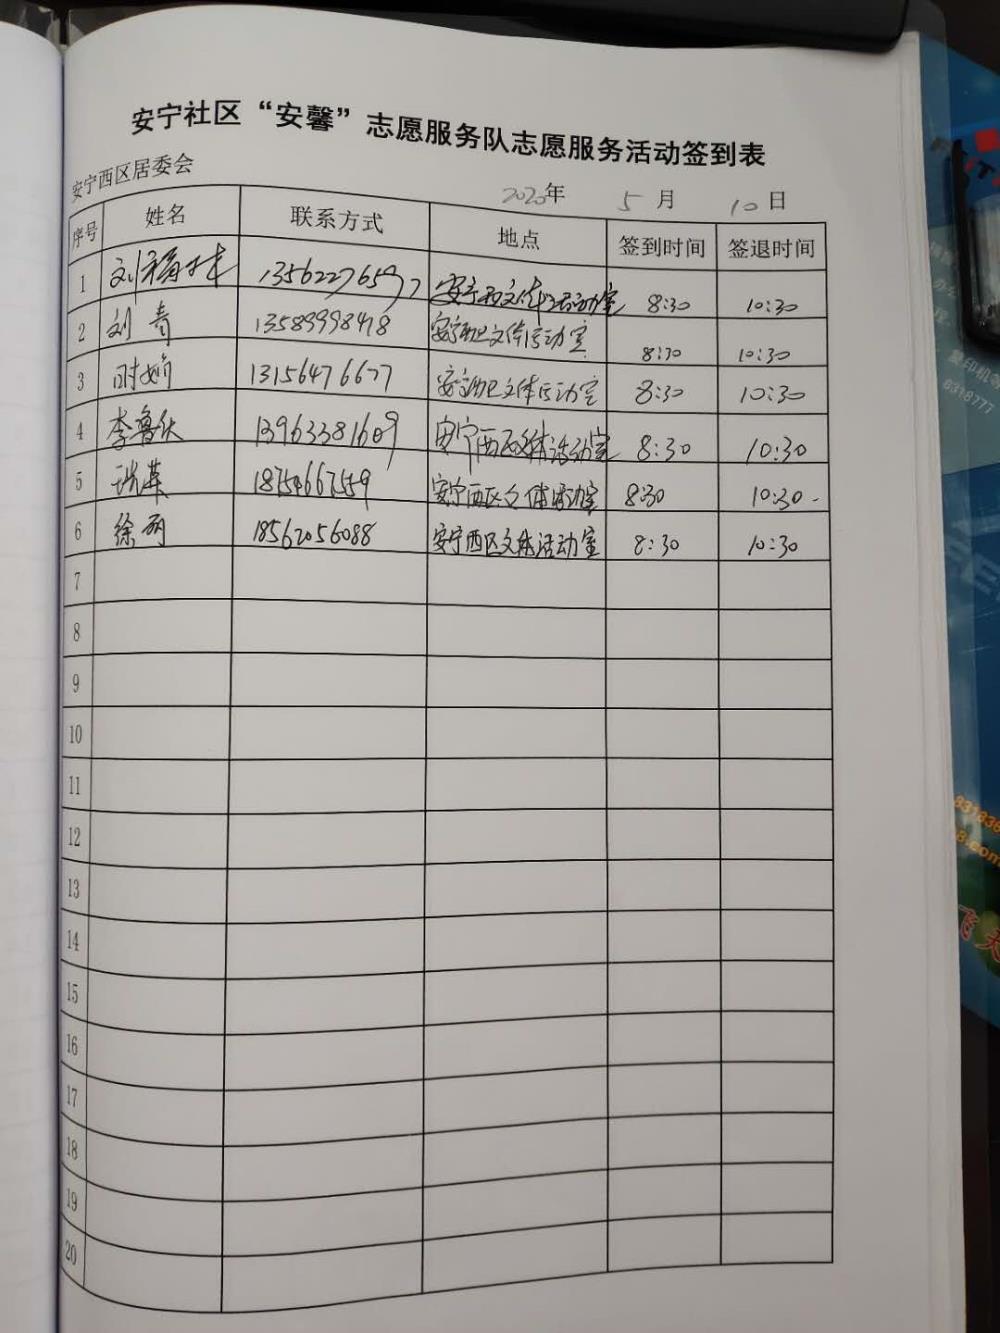 安宁社区“安馨”志愿服务队志愿服务活动签到表
安宁西区居委会
2020年 5 月 10 日
序号 姓名 联系方式 地点 签到时间 签退时间
1 刘 13562276597 安宁西区文体活动室 8:30 10:30
2 刘青 13589998418 安宁西区文体活动室 8:30 10:30
3 时娟 13156476677 安宁西区文体活动室 8:30 10:30
4 李鲁 13963381609 安宁西区文体活动室 8:30 10:30
5 18754667559 安宁西区文体活动室 8:30 10:30
6 徐丽 18562056088 安宁西区文体活动室 8:30 10:30
7
8
9
10
11
12
13
14
15
16
17
18
19
20
6318777